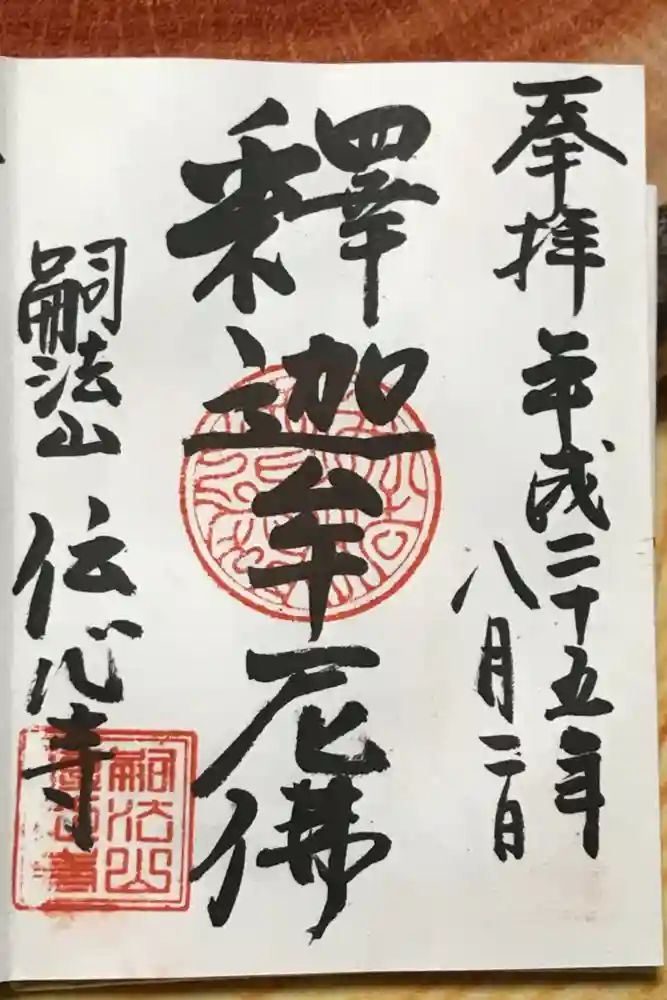 奉拝 平成二十五年
八月二日
釋迦牟尼佛
嗣法山 伝心寺
嗣法山